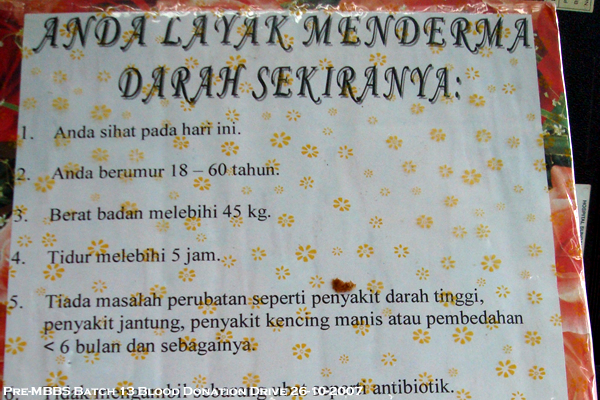 ANDA LAYAK MENDERMA
DARAH SEKIRANYA:
1. Anda sihat pada hari ini.
2. Anda berumur 18 – 60 tahun.
3. Berat badan melebihi 45 kg.
4. Tidur melebihi 5 jam.
5. Tiada masalah perubatan seperti penyakit darah tinggi,
penyakit jantung, penyakit kencing manis atau pembedahan
< 6 bulan dan sebagainya.
seperti antibiotik.
Pre-MBBS Batch 13 Blood Donation Drive 26-10-2007